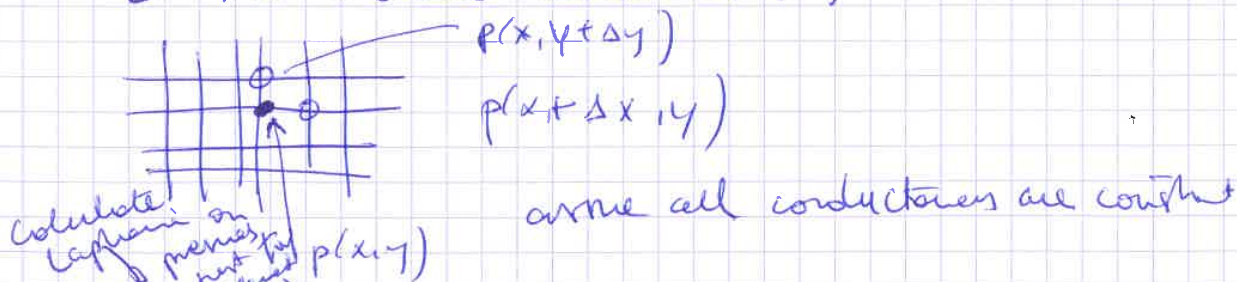 p(x, y+Δy)
p(x+Δx, y)
assume all conductances are constant
calculate
on
pressures
p(x,y)